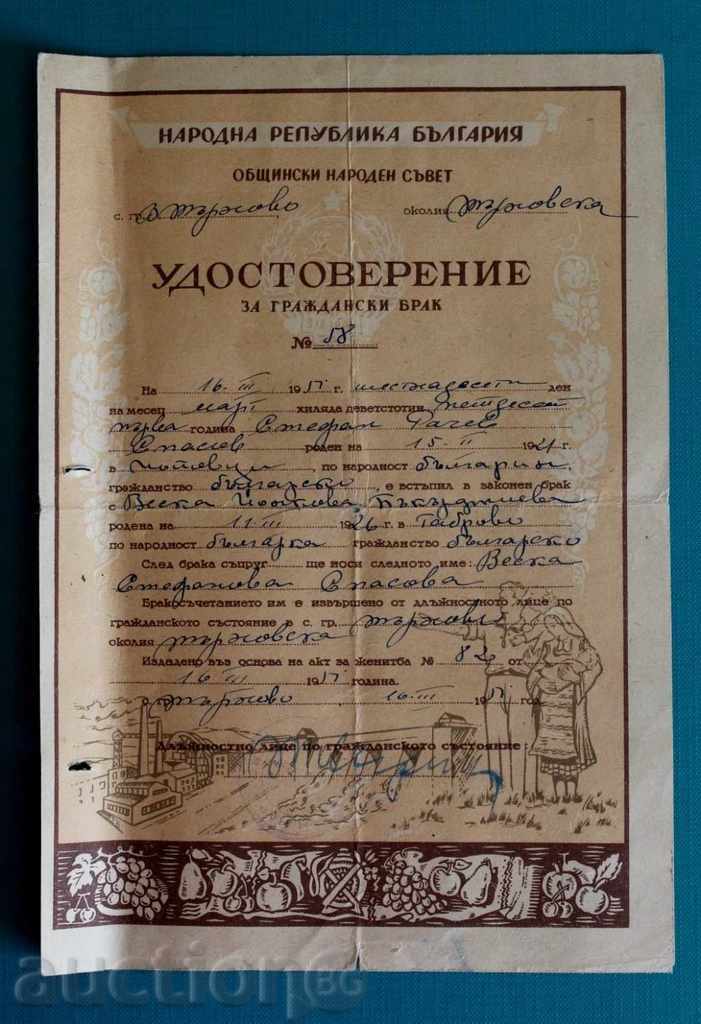 НАРОДНА РЕПУБЛИКА БЪЛГАРИЯ
ОБЩИНСКИ НАРОДЕН СЪВЕТ
с. г. В. Търново околия Търновска
УДОСТОВЕРЕНИЕ
ЗА ГРАЖДАНСКИ БРАК
№ 58
На 16. III 1951 г. шестнадесети ден
на месец март хиляда деветстотин петдесет
първа година Стефан Рачев
Спасов роден на 15. II 1921 г.
в , по народност българин,
гражданство българско, е встъпил в законен брак
с Веска Цонкова
родена на 11. III 1926 г. в Габрово
по народност българка гражданство българско
След брака съпруг ще носи следното име: Веска
Стефанова Спасова
Бракосъчетанието им е извършено от длъжностното лице по
гражданското състояние в с. гр. Търново
околия Търновска
Издадено въз основа на акт за женитба № 82 от
16 III 1951 година.
с. Търново, 16. III 1951 год.
Длъжностно лице по гражданското състояние:
auctionBG